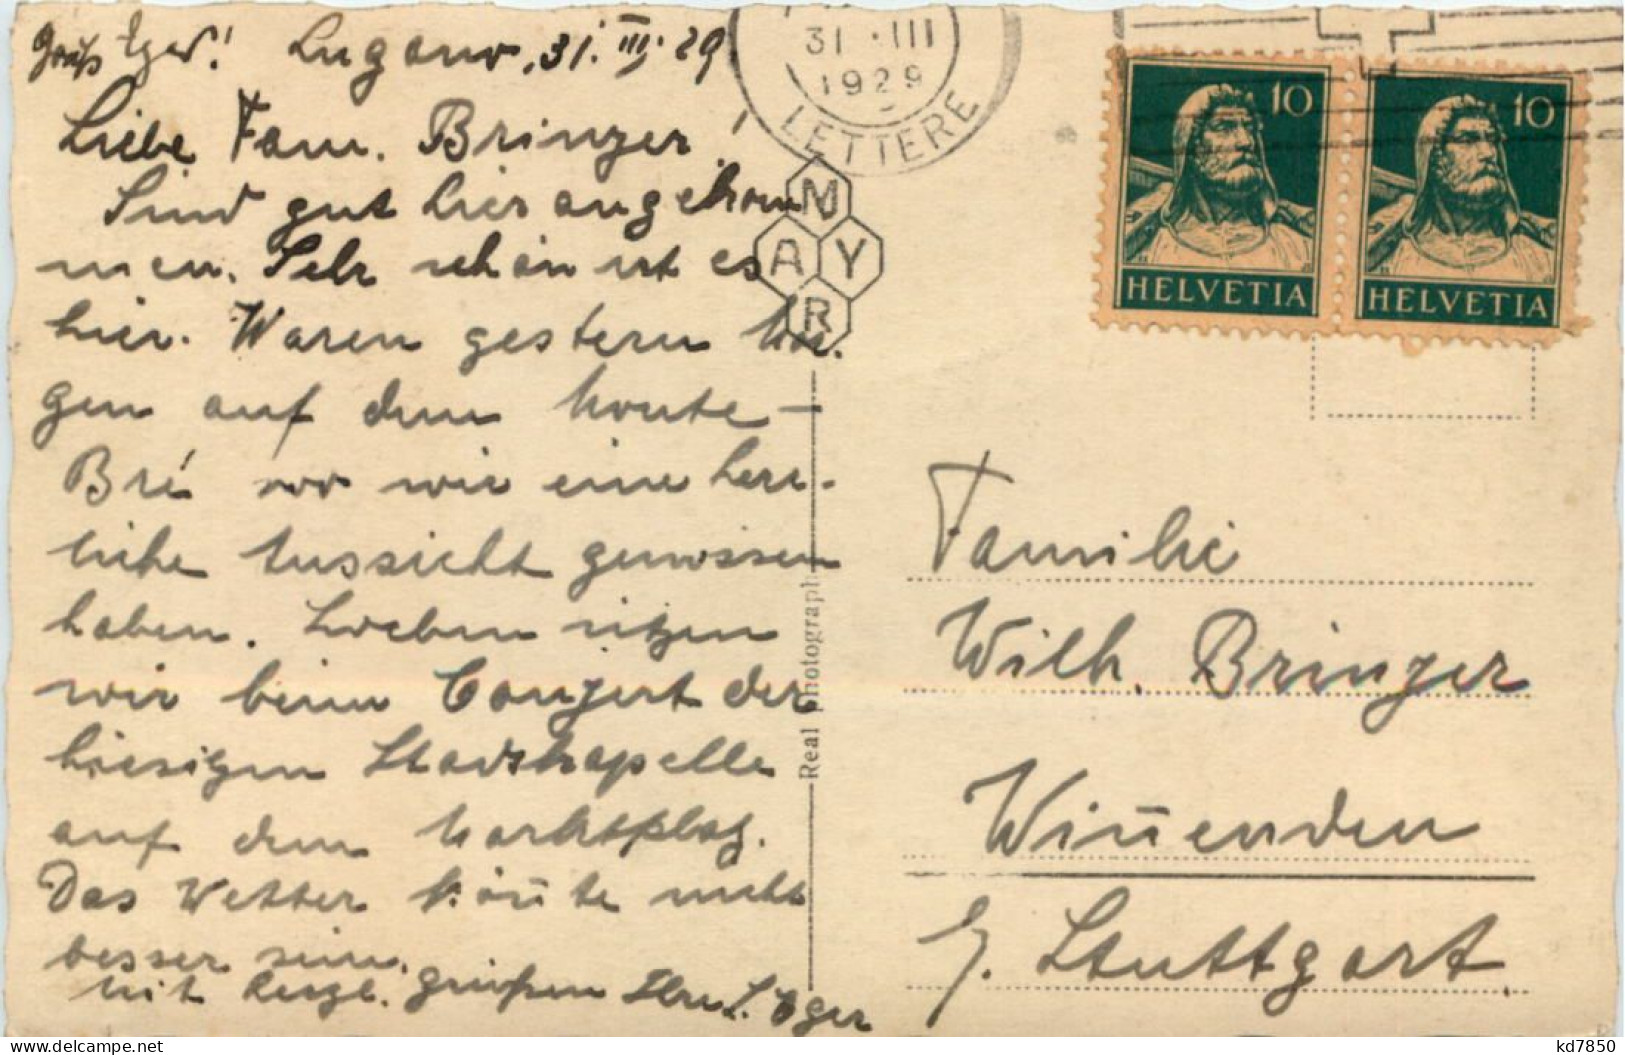 Lugano, 31. III. 29
Liebe Fam. Brinzer!
Sind gut hier angekom
men. Sehr schön ist es
hier. Waren gestern Mor-
gen auf dem Monte-
Bré wo wir eine herr-
liche Aussicht genossen
haben. Soeben sitzen
wir beim Conzert der
hiesigen Stadtkapelle
auf dem Marktplatz.
Das Wetter könnte nicht
besser sein.
Mit herzl. Grüßen Ihre L. Eger
Gruß Eger!
31 · III
1929
LETTERE
M
A Y
R
Real Photograph
10 10
HELVETIA HELVETIA
Familie
Wilh. Brinzer
Win̄enden
b. Stuttgart
delcampe.net
kd7850